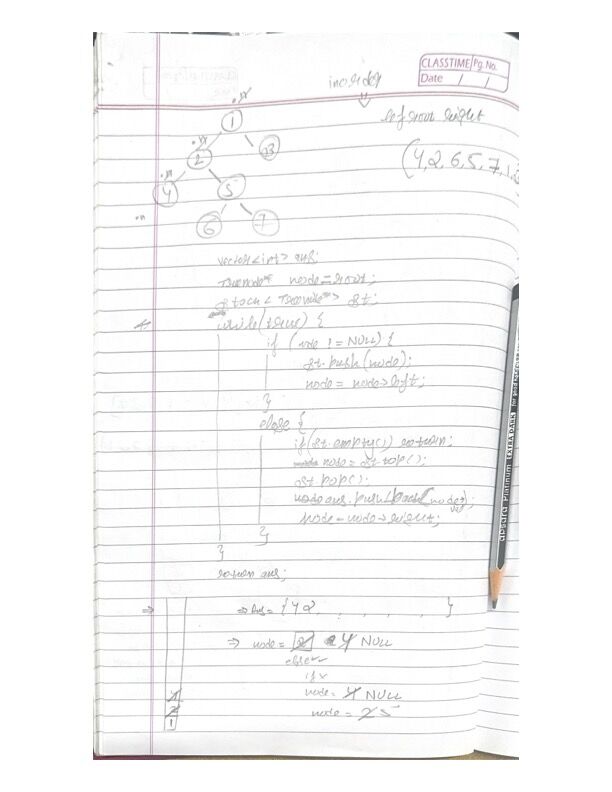 CLASSTIME Pg. No.
Date / /
inorder
left root right
(4,2,6,5,7,1,3
1
2
3
4
5
6
7
vector<int> ans;
Treenode* node=root;
stack< Treenode*> st;
while(true) {
if (node != NULL) {
st.push(node);
node = node->left;
}
else {
if(st.empty()) return;
node = st.top();
st.pop();
ans.push_back(node->val);
node = node->right;
}
}
return ans;
=> => Ans = {4 2 , , , , }
=> node = 2 4 NULL
else
if x
4 node = 4 NULL
2 node = 2 5
1
apsara Platinum EXTRA DARK